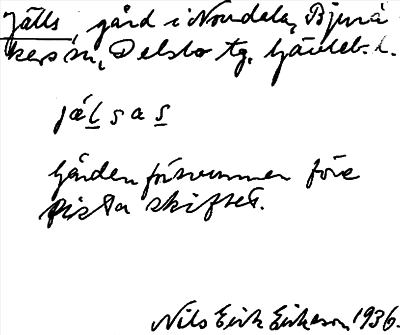 Jälls, gård i Norrdala, Bjurå-
kers sn, Delsbo tg, Gävleb. l.
jælsas
Gården försvunnen före
sista skiftet.
Nils Erik Eriksson 1936.